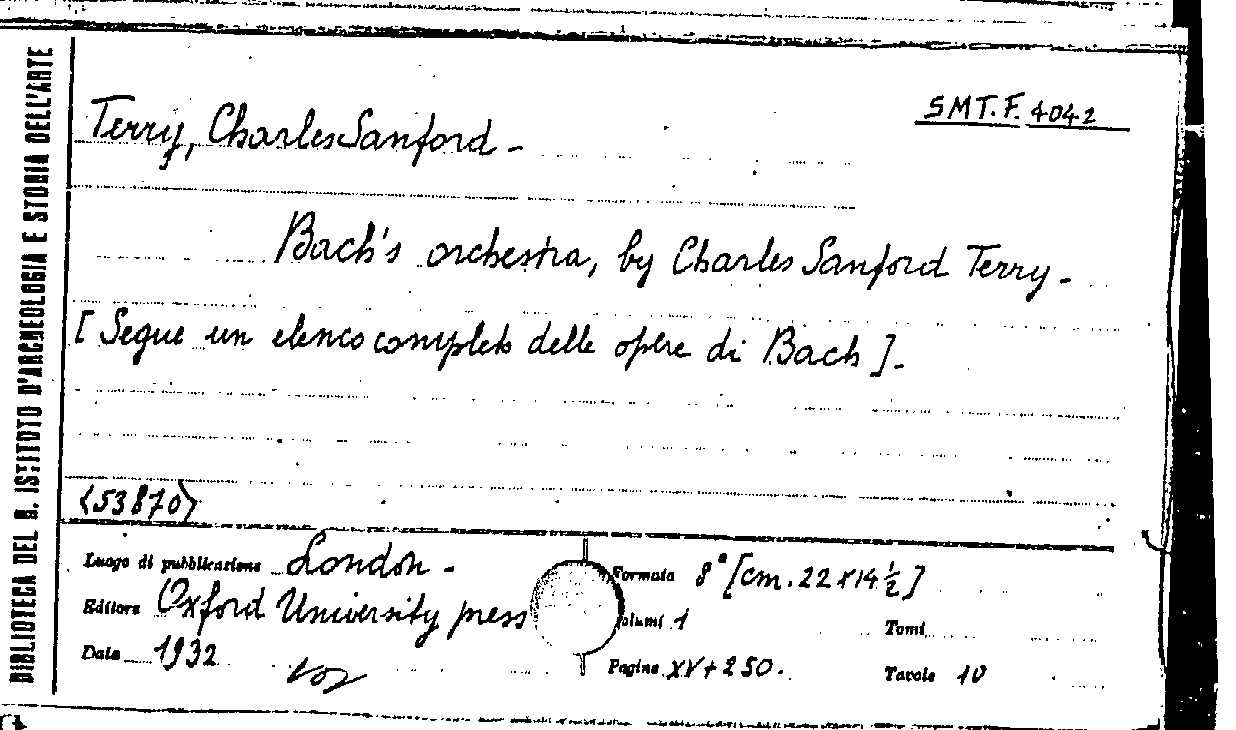 BIBLIOTECA DEL R. ISTITUTO D'ARCHEOLOGIA E STORIA DELL'ARTE
SMT.F. 4042
Terry, Charles Sanford -
Bach's orchestra, by Charles Sanford Terry -
[Segue un elenco completo delle opere di Bach]-
(53870)
Luogo di pubblicazione London -
Editore Oxford University press
Data 1932
Formato 8° [cm. 22 x 14 ½]
Volumi 1 Tomi
Pagine XV + 250. Tavole 10